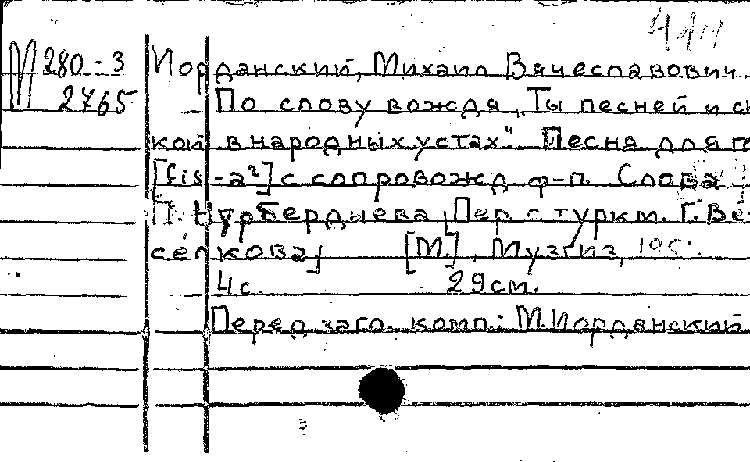 М 280-3 Иорданский, Михаил Вячеславович.
2765 По слову вождя „Ты песней и ск
кой в народных устах". Песня для г
[fis-a²] с сопровожд ф-п. Слова
П. Нурбердыева [Пер. с туркм. Г. Ве-
селкова] [М.], Музгиз, 195
4 с. 29 см.
Перед заго. комп.: М. Иорданский